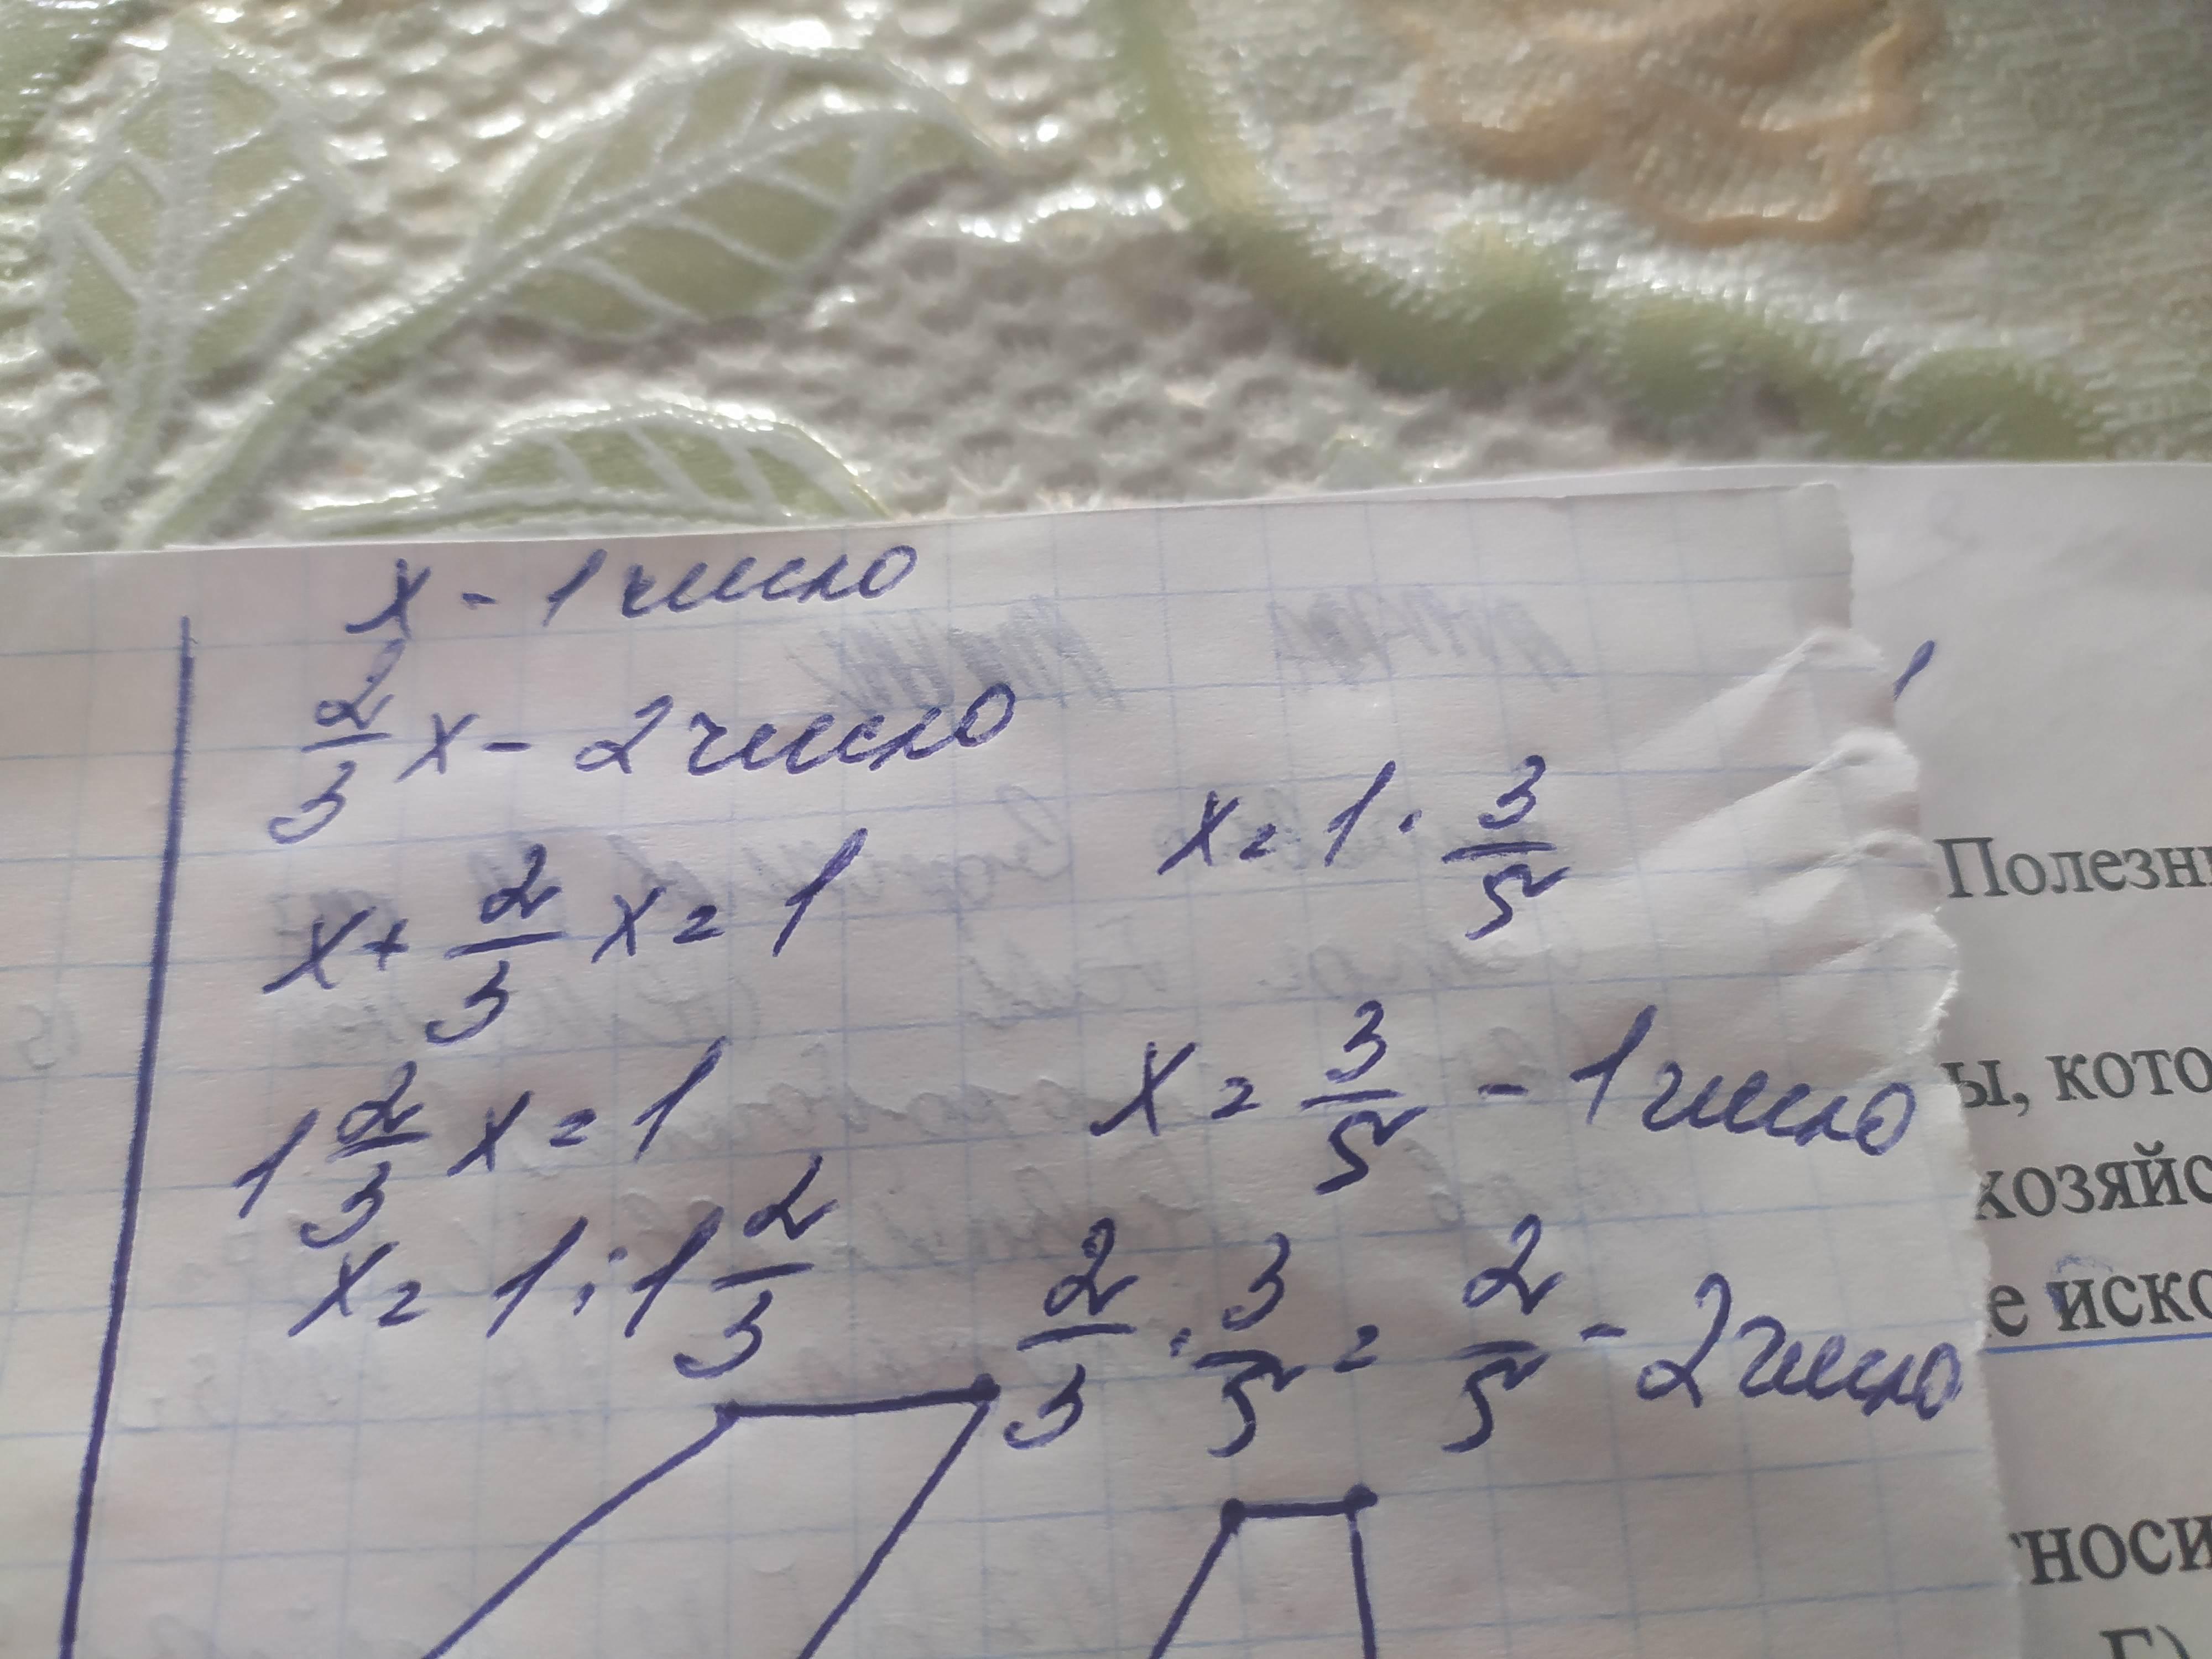 x - 1 число
2/3 x - 2 число
x + 2/3 x = 1
1 2/3 x = 1
x = 1 : 1 2/3
x = 1 · 3/5
x = 3/5 - 1 число
2/3 · 3/5 = 2/5 - 2 число
Полезн
ы, кото
хозяйс
е иско
тноси
Г)